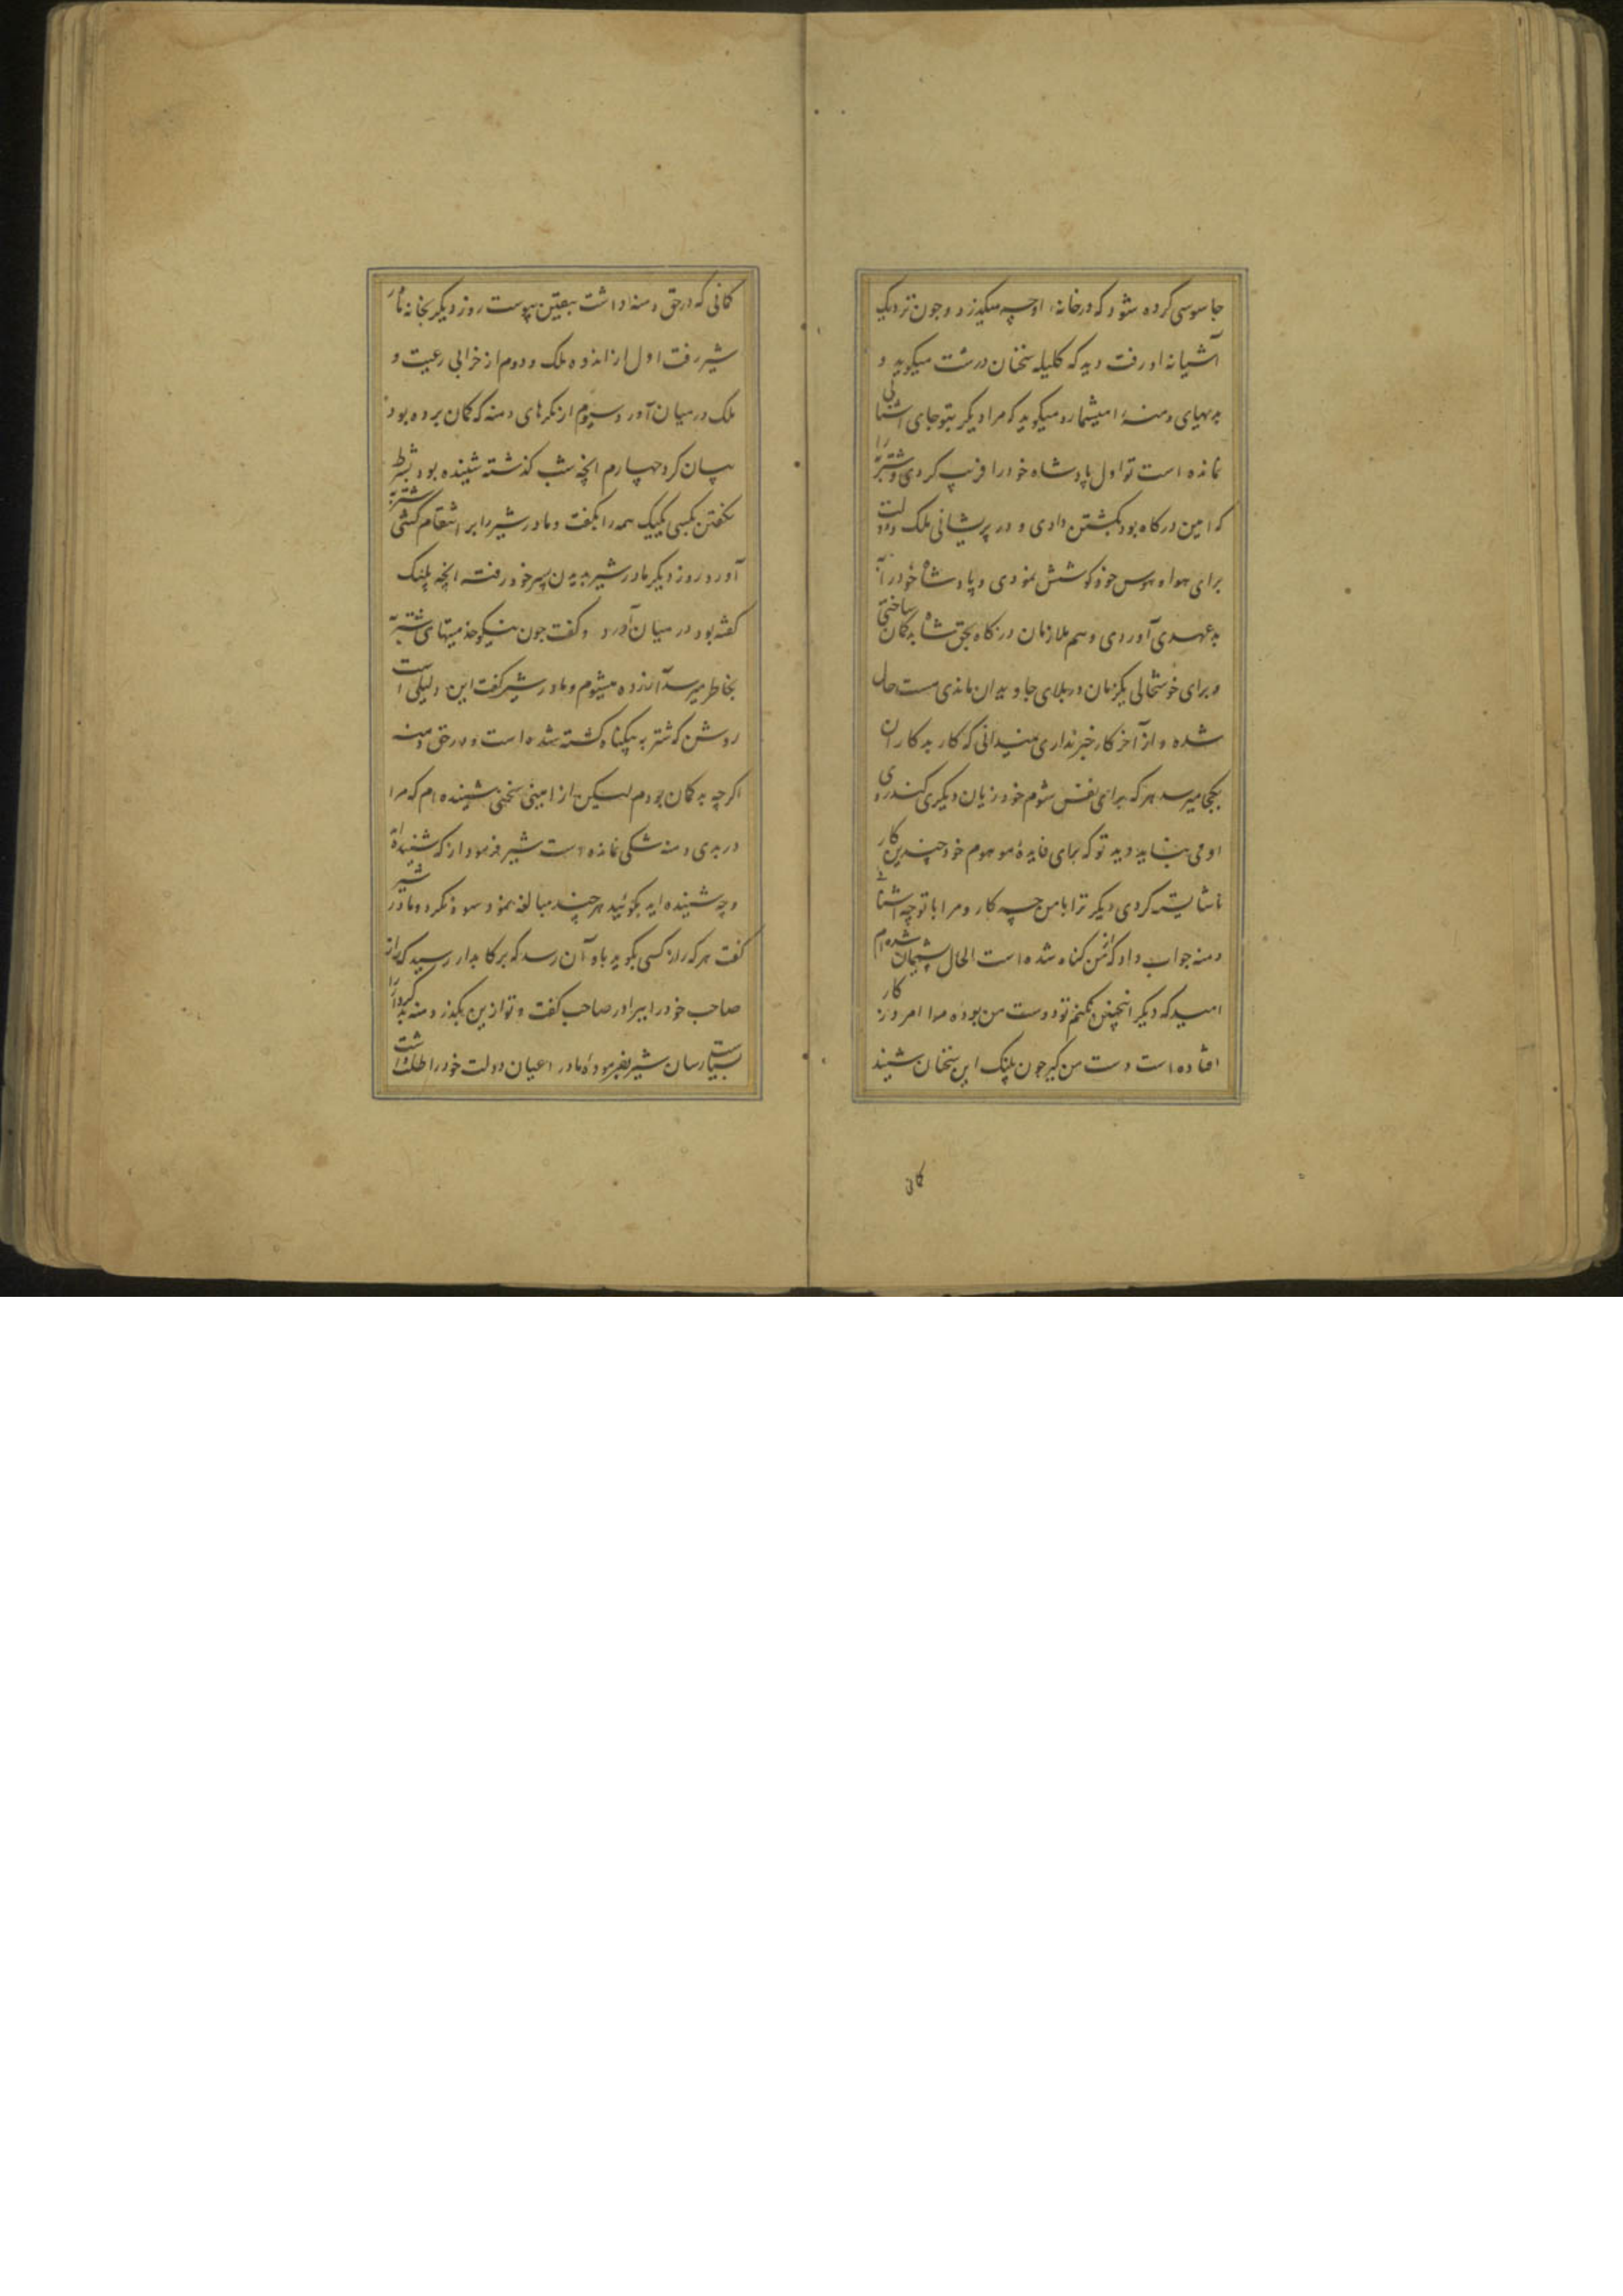 جاسوسی کرده شود که در خانه او چه میگذرد و چون نزدیک
آشیانه او رفت دید که کلیله سخنان درشت میگوید و
بدیهای دمنه را میشمارد و میگوید که مرا دیگر بتو جای آشنائی
نمانده است تو اول پادشاه خود را فریب کردی و شتربه را
که امین درکاه بود بکشتن دادی و در پریشانی ملک و دولت
برای هوا و هوس خود کوشش نمودی و پادشاه خود را
بد عهدی آوردی و هم ملازمان درکاه بحق شاه بدکمان ساختی
و برای خوشحالی یکزمان در بلای جاویدان ماندی مست حال
شده و از آخر کار خبر نداری نمیدانی که کار بدکاران
بکجا میرسد هر که برای نفس شوم خود زیان دیکری کند روی
او می نباید دید تو که بجای فایدهٔ موهوم خود چندین کار
ناشایسته کردی دیکر ترا با من چه کار و مرا با تو چه
دمنه جواب داد که از من کناه شده است الحال پشیمان شده ام
امید که دیکر اینچنین نکنم تو دوست من بوده مرا امروز کار
افتاده است دست من کیر چون پلنک این سخنان شنید
کان
کمانی که در حق دمنه داشت بیقین پیوست روز دیکر بخانه مادر
شیر رفت اول از اندوه ملک و دوم از خرابی رعیت و
ملک در میان آورد و سیوم از مکرهای دمنه که کمان برده بود
بیان کرد چهارم آنچه شب کذشته شنیده بود بشرط
نکفتن بکسی یکیک همه را بکفت و مادر شیر را بر انتقام کشی شتربه
آورد و روز دیکر مادر شیر بدیدن پسر خود رفت آنچه پلنک
کفته بود در میان آورد و کفت چون نیکو خدمیتهای شتربه
بخاطر میرسد آزرده میشوم و مادر شیر کفت این دلیلی است
روشن که شتربه بیکناه کشته شده است و در حق دمنه
اکرچه بد کمان بودم لیکن از امینی سخنی شنیده ام که مرا
در بدی دمنه شکی نمانده است شیر فرمود از که شنیده
و چه شنیده اید بکوئید هر چند مبالغه نمود سود نکرد و مادر شیر
کفت هر که راز کسی بکوید باو آن رسد که برکابدار رسید که راز
صاحب خود را برادر صاحب کفت و تو ازین بکذر و دمنه بدکردار را
بسیاست رسان شیر بفرمودهٔ مادر اعیان دولت خود را طلب داشت